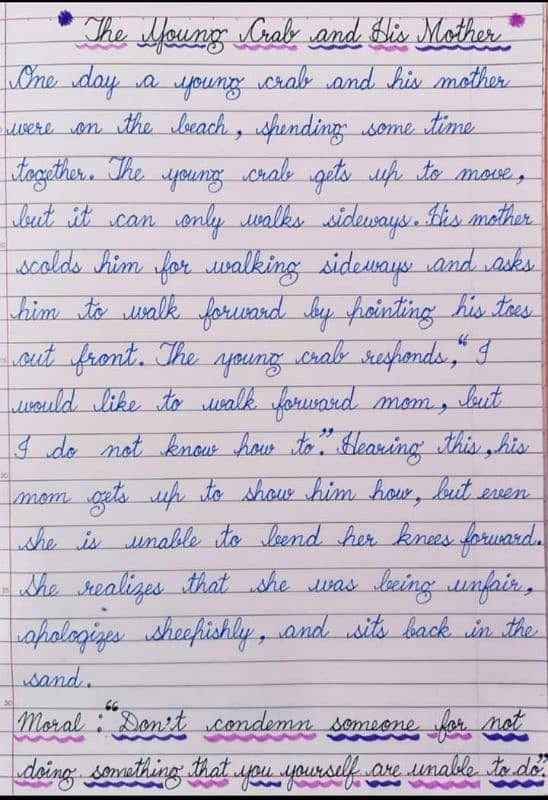 The Young Crab and His Mother
One day a young crab and his mother
were on the beach, spending some time
together. The young crab gets up to move,
but it can only walks sideways. His mother
scolds him for walking sideways and asks
him to walk forward by pointing his toes
out front. The young crab responds, "I
would like to walk forward mom, but
I do not know how to". Hearing this, his
mom gets up to show him how, but even
she is unable to bend her knees forward.
She realizes that she was being unfair,
apologizes sheepishly, and sits back in the
sand.
Moral : "Don't condemn someone for not
doing something that you yourself are unable to do".